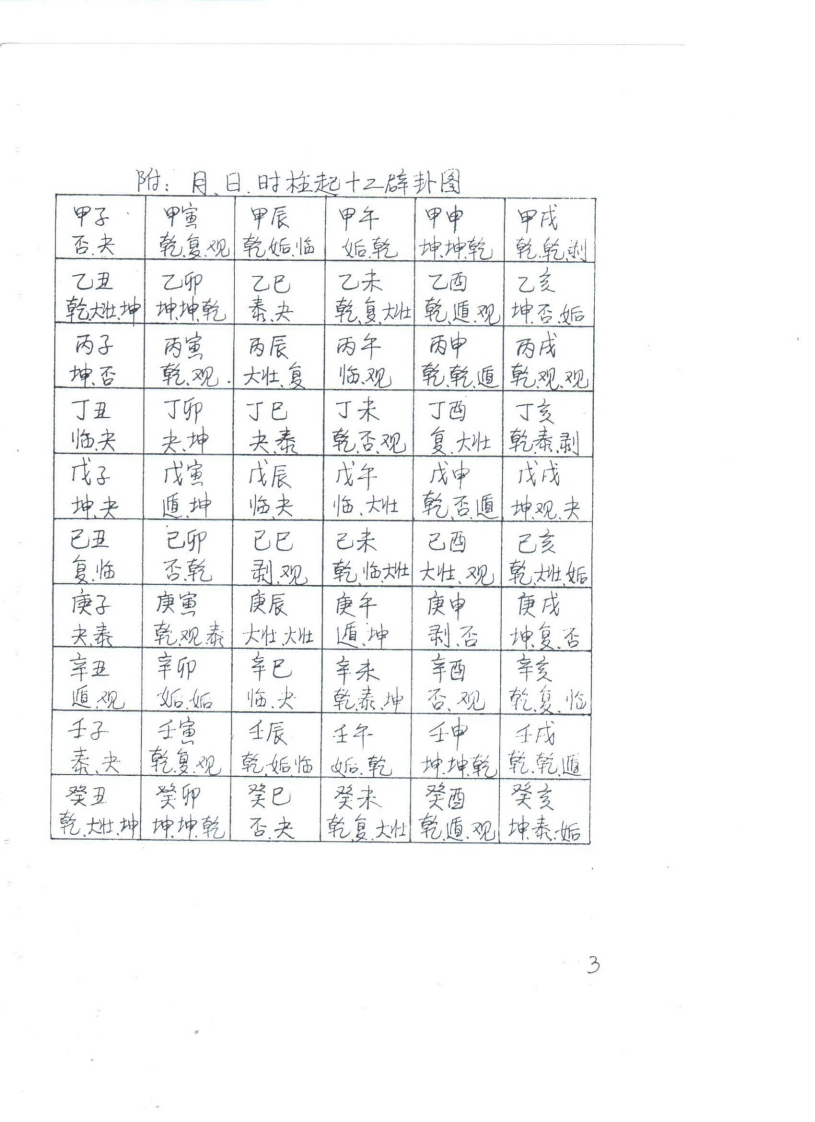 附：月、日、时柱起十二辟卦图
甲子 甲寅 甲辰 甲午 甲申 甲戌
否.夬 乾.复.观 乾.姤.临 姤.乾 坤.坤.乾 乾.乾.剥
乙丑 乙卯 乙巳 乙未 乙酉 乙亥
乾.大壮.坤 坤.坤.乾 泰.夬 乾.复.大壮 乾.遁.观 坤.否.姤
丙子 丙寅 丙辰 丙午 丙申 丙戌
坤.否 乾.观. 大壮.复 临.观 乾.乾.遁 乾.观.观
丁丑 丁卯 丁巳 丁未 丁酉 丁亥
临.夬 夬.坤 夬.泰 乾.否.观 复.大壮 乾.泰.剥
戊子 戊寅 戊辰 戊午 戊申 戊戌
坤.夬 遁.坤 临.夬 临.大壮 乾.否.遁 坤.观.夬
己丑 己卯 己巳 己未 己酉 己亥
复.临 否.乾 剥.观 乾.临.大壮 大壮.观 乾.大壮.姤
庚子 庚寅 庚辰 庚午 庚申 庚戌
夬.泰 乾.观.泰 大壮.大壮 遁.坤 剥.否 坤.复.否
辛丑 辛卯 辛巳 辛未 辛酉 辛亥
遁.观 姤.姤 临.夬 乾.泰.坤 否.观 乾.复.临
壬子 壬寅 壬辰 壬午 壬申 壬戌
泰.夬 乾.复.观 乾.姤.临 姤.乾 坤.坤.乾 乾.乾.遁
癸丑 癸卯 癸巳 癸未 癸酉 癸亥
乾.大壮.坤 坤.坤.乾 否.夬 乾.复.大壮 乾.遁.观 坤.泰.姤
3